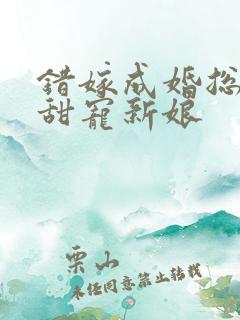 錯嫁成婚总
甜寵新娘
栗山
未经同意禁止转载